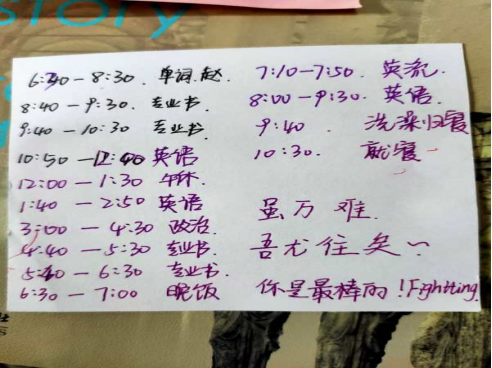 story
6:40 - 8:30. 单词.赵.
8:40 - 9:30. 专业书
9:40 - 10:30 专业书
10:50 - 12:00 英语
12:00 - 1:30 午休.
1:40 - 2:50 英语
3:00 - 4:30 政治.
4:40 - 5:30 专业书.
5:40 - 6:30 专业书.
6:30 - 7:00 晚饭
7:10 - 7:50. 英流.
8:00 - 9:30. 英语.
9:40. 洗澡归寝
10:30. 就寝
虽万难.
吾尤往矣~
你是最棒的!Fightting